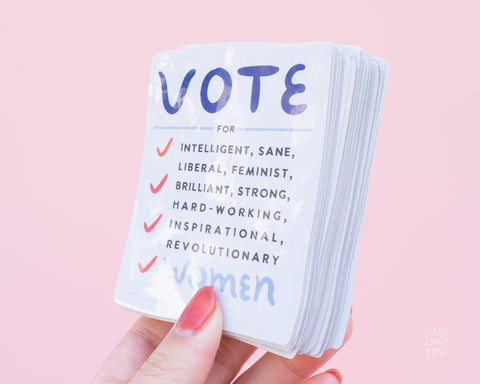 VOTE
FOR
INTELLIGENT, SANE,
LIBERAL, FEMINIST,
BRILLIANT, STRONG,
HARD-WORKING,
INSPIRATIONAL,
REVOLUTIONARY
WOMEN